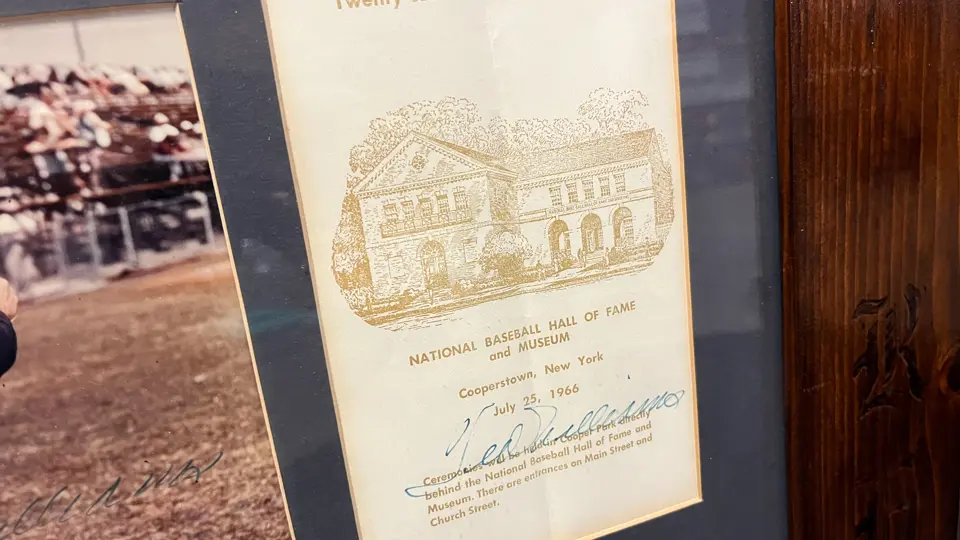 Twenty
NATIONAL BASEBALL HALL OF FAME
and MUSEUM
Cooperstown, New York
July 25, 1966
Ted Williams
Ceremonies will be held in Cooper Park directly
behind the National Baseball Hall of Fame and
Museum. There are entrances on Main Street and
Church Street.
K